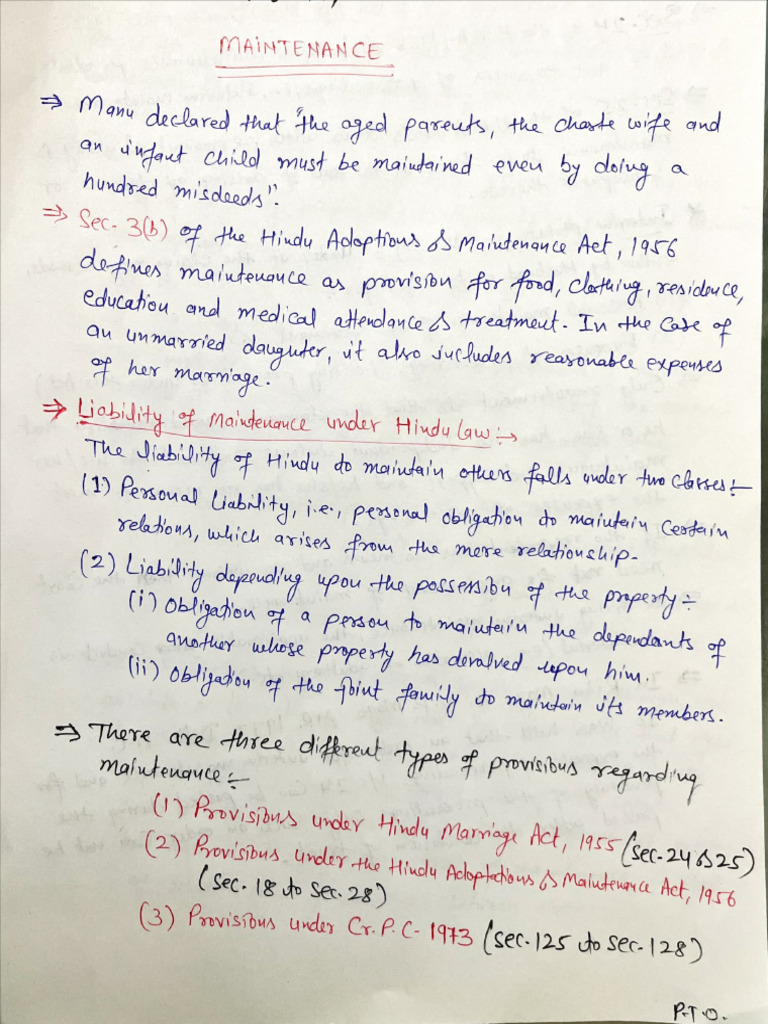 MAINTENANCE
⇒ Manu declared that "the aged parents, the chaste wife and
an infant child must be maintained even by doing a
hundred misdeeds".
⇒ Sec. 3(b) of the Hindu Adoptions & Maintenance Act, 1956
defines maintenance as provision for food, clothing, residence,
education and medical attendance & treatment. In the case of
an unmarried daughter, it also includes reasonable expenses
of her marriage.
⇒ Liability of Maintenance under Hindu Law:→
The liability of Hindu to maintain others falls under two classes:-
(1) Personal Liability, i.e., personal obligation to maintain certain
relations, which arises from the mere relationship.
(2) Liability depending upon the possession of the property:-
(i) Obligation of a person to maintain the dependants of
another whose property has devalved upon him.
(ii) Obligation of the joint family to maintain its members.
⇒ There are three different types of provisions regarding
maintenance:-
(1) Provisions under Hindu Marriage Act, 1955 (Sec. 24 & 25)
(2) Provisions under the Hindu Adoptations & Maintenance Act, 1956
(Sec. 18 to Sec. 28)
(3) Provisions under Cr.P.C- 1973 (Sec. 125 to Sec. 128)
P.T.O.